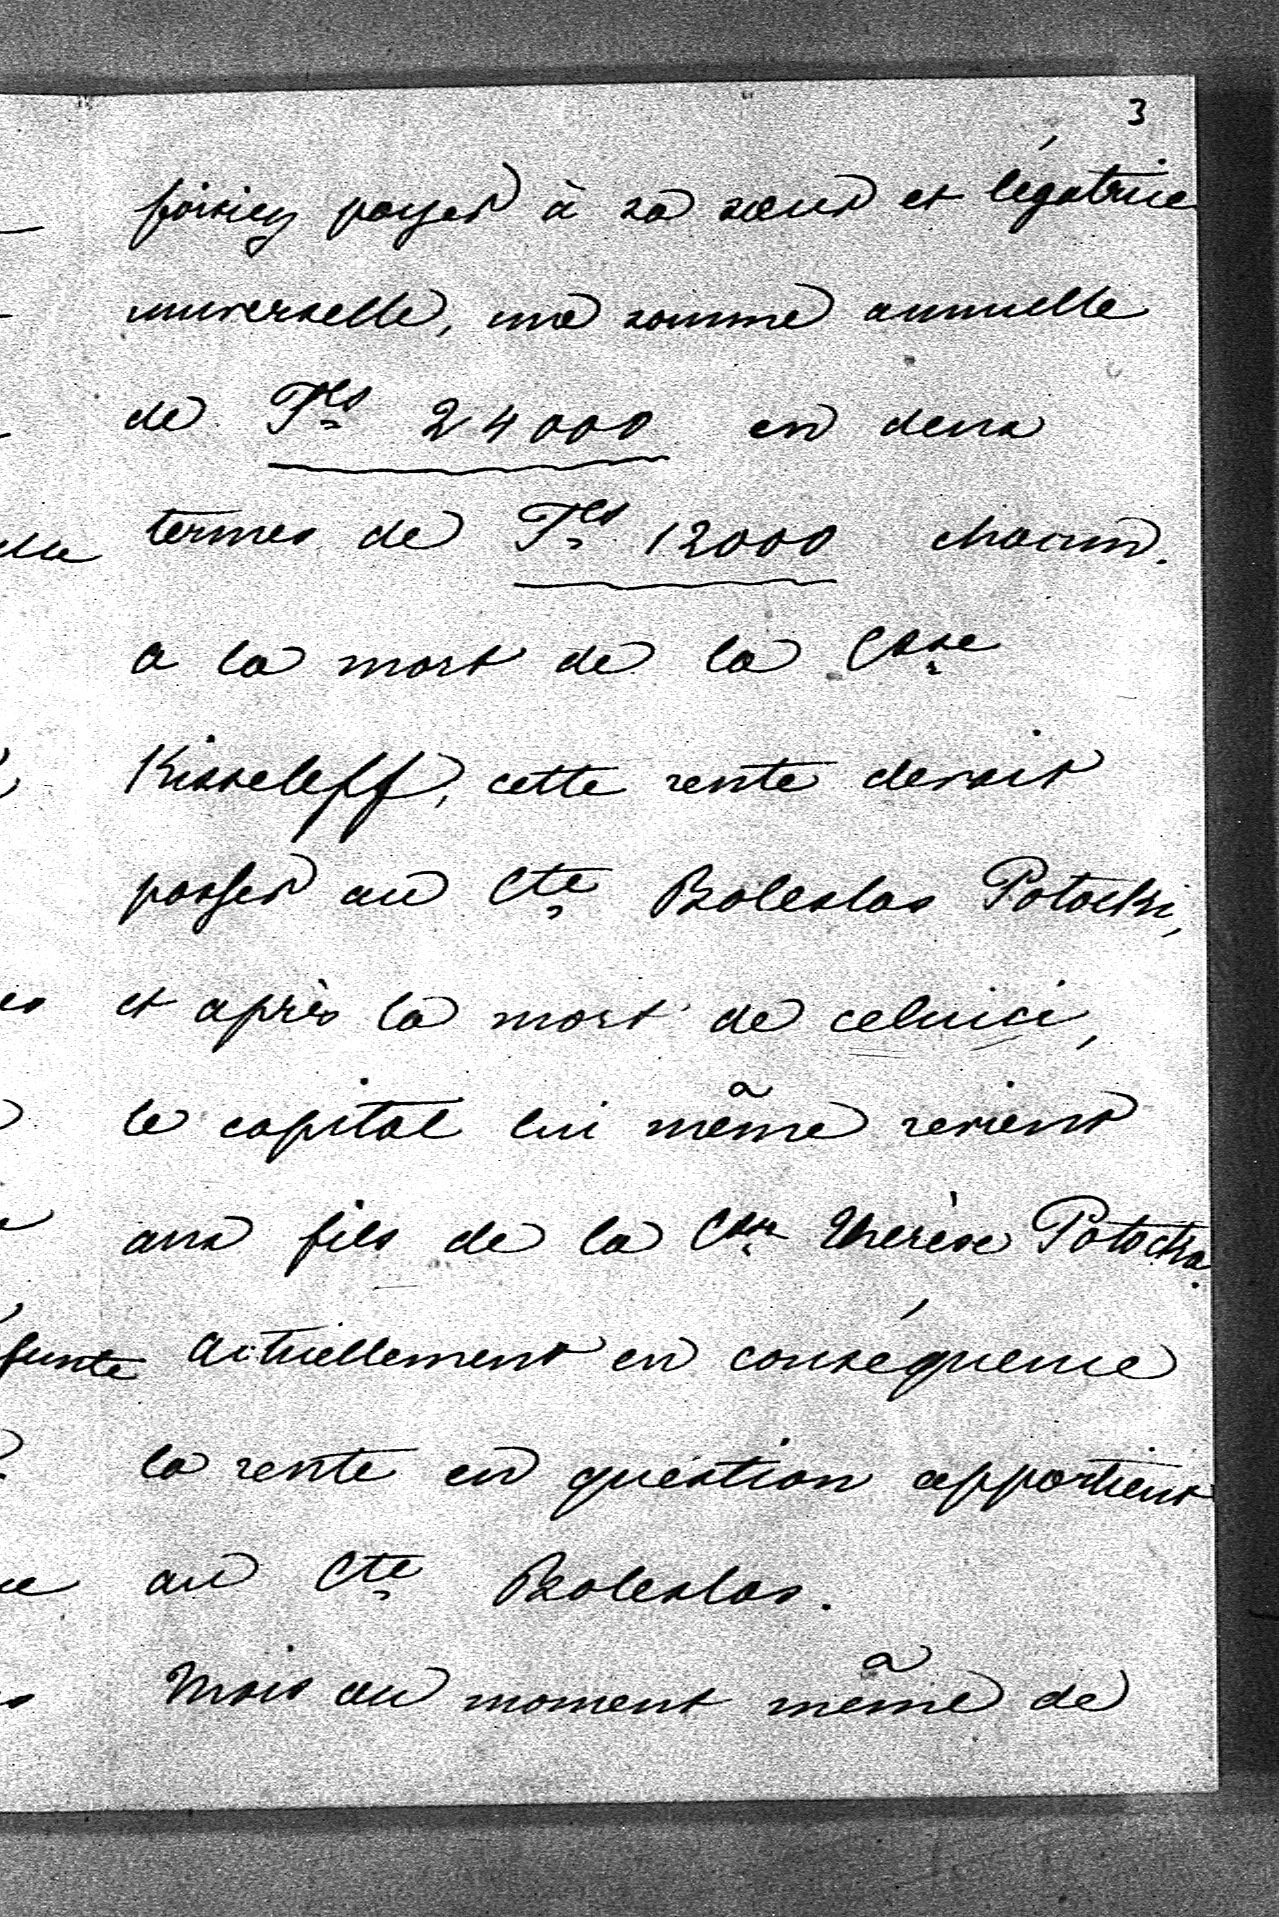 3
payer à sa sœur et légatrice
universelle, une somme annuelle
de Frs 24000 en deux
termes de Frs 12000 chacun.
a la mort de la Csse
Kisseleff, cette rente devait
passer au Cte Boleslas Potocki,
et après la mort de celuici,
le capital lui même revient
aux fils de la Csse Thérèse Potocka.
Actuellement en conséquence
la rente en question appartient
au Cte Boleslas.
Mais au moment même de